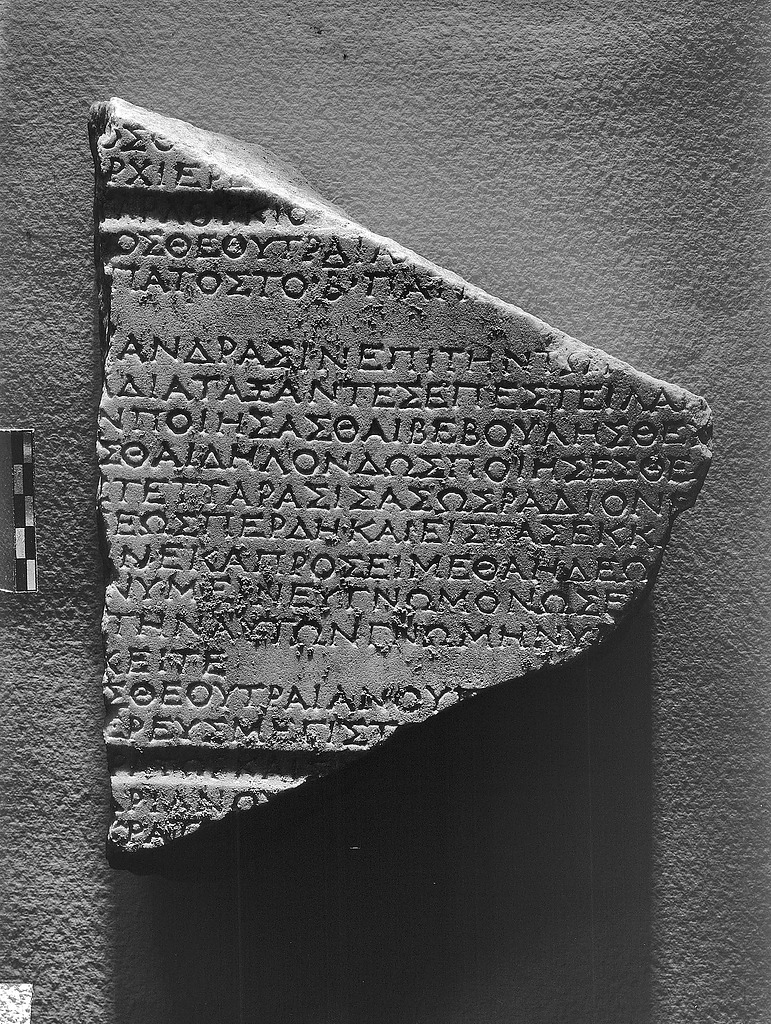 ΟΣΘ
ΡΧΙΕΡ
ΟΣΘΕΟΥΤΡΑΙΑ
ΠΑΤΟΣΤΟΒΠΑΤ
ΑΝΔΡΑΣΙΝΕΠΙΤΗΝΤΩ
ΔΙΑΤΑΞΑΝΤΕΣΕΠΕΣΤΕΙΛΑ
ΝΠΟΙΗΣΑΣΘΑΙΒΕΒΟΥΛΗΣΘΕΝ
ΣΘΑΙΔΗΛΟΝΔΩΣΠΟΙΗΣΕΣΘΕ
ΤΕΤΤΑΡΑΣΙΣΑΣΩΣΡΑΔΙΟΝ
ΕΩΣΠΕΡΔΗΚΑΙΕΙΣΤΑΣΕΚΚ
ΝΕΚΑΠΡΟΣΕΙΜΕΘΑΗΔΕΩ
ΝΥΜΕΙΝΕΥΓΝΩΜΟΝΩΣΕ
ΤΗΝΑΥΤΩΝΓΝΩΜΗΝΥ
ΚΕΙΤΕ
ΣΘΕΟΥΤΡΑΙΑΝΟΥΥ
ΕΡΕΥΣΜΕΓΙΣΤ
ΡΙΑΝΟΥ
ΚΡΑΤ